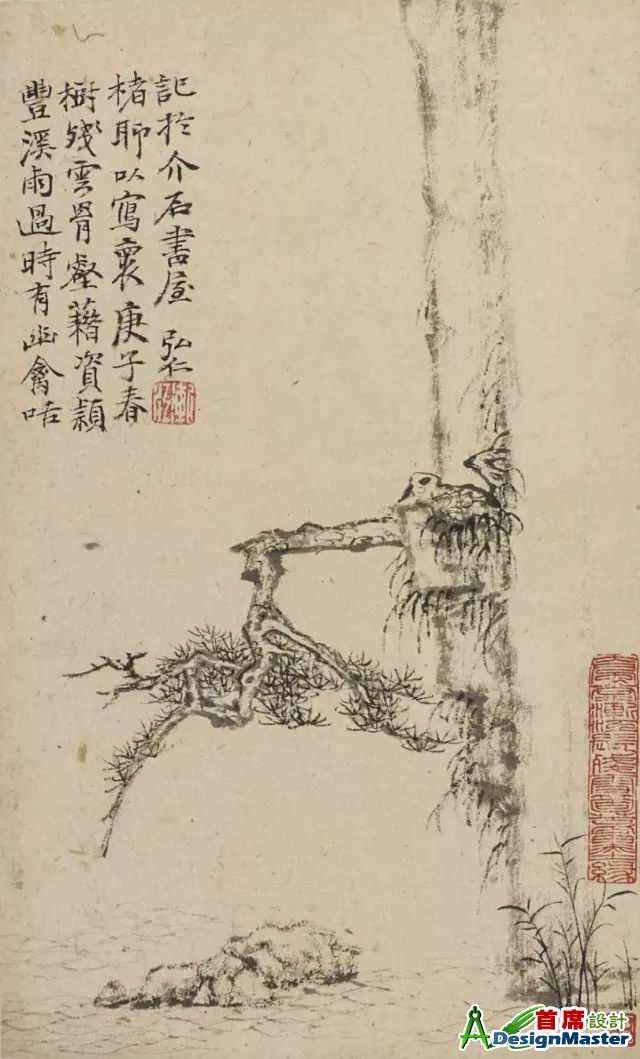 豐溪雨過時有幽禽咶
樹殘雲冒壑藉資穎
楮聊以寫褱庚子春
記於介石書屋 弘仁
首席設計
DesignMaster